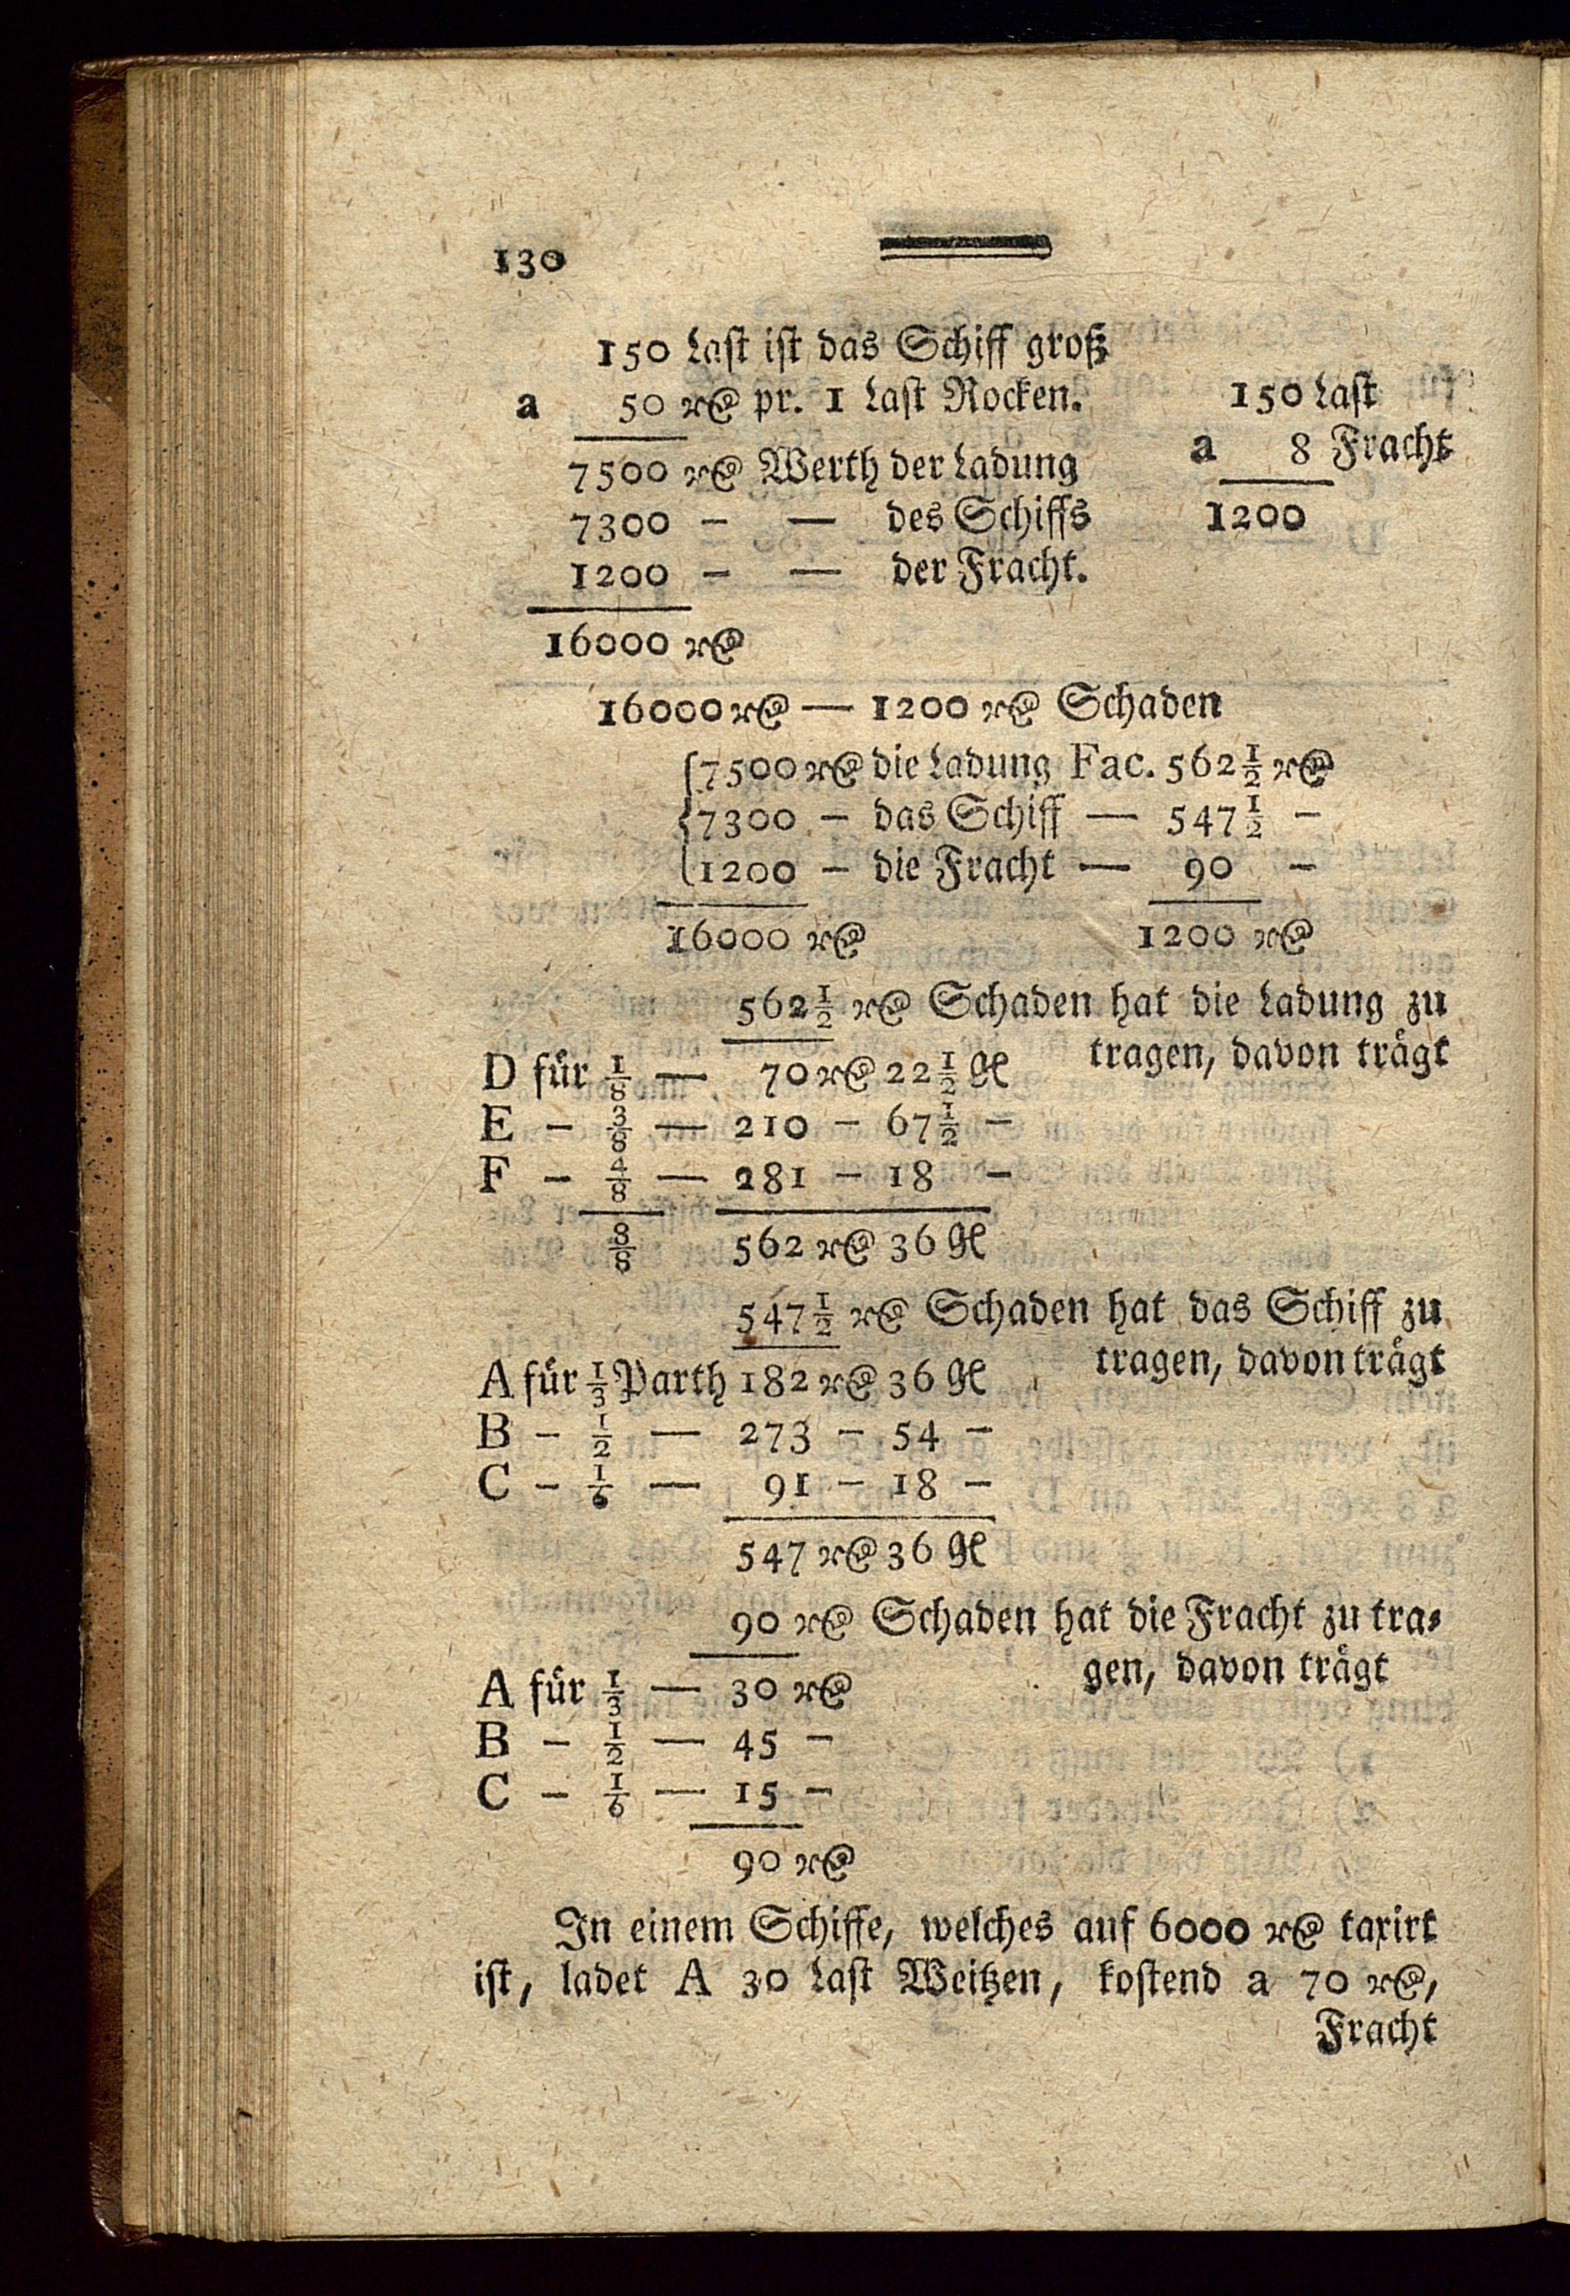 130
150 Last ist das Schiff groß
a 50 rℓ pr. 1 Last Rocken. 150 Last
7500 rℓ Werth der Ladung a 8 Fracht
7300 - — des Schiffs 1200
1200 - — der Fracht.
16000 rℓ
16000 rℓ — 1200 rℓ Schaden
7500 rℓ die Ladung Fac. 562 1/2 rℓ
7300 - das Schiff — 547 1/2 -
1200 - die Fracht — 90 -
16000 rℓ 1200 rℓ
562 1/2 rℓ Schaden hat die Ladung zu
tragen, davon trägt
D für 1/8 — 70 rℓ 22 1/2 gℓ
E - 3/8 — 210 - 67 1/2 -
F - 4/8 — 281 - 18 -
8/8 562 rℓ 36 gℓ
547 1/2 rℓ Schaden hat das Schiff zu
tragen, davon trägt
A für 1/3 Parth 182 rℓ 36 gℓ
B - 1/2 — 273 - 54 -
C - 1/6 — 91 - 18 -
547 rℓ 36 gℓ
90 rℓ Schaden hat die Fracht zu tra⸗
gen, davon trägt
A für 1/3 — 30 rℓ
B - 1/2 — 45 -
C - 1/6 — 15 -
90 rℓ
In einem Schiffe, welches auf 6000 rℓ taxirt
ist, ladet A 30 Last Weitzen, kostend a 70 rℓ,
Fracht